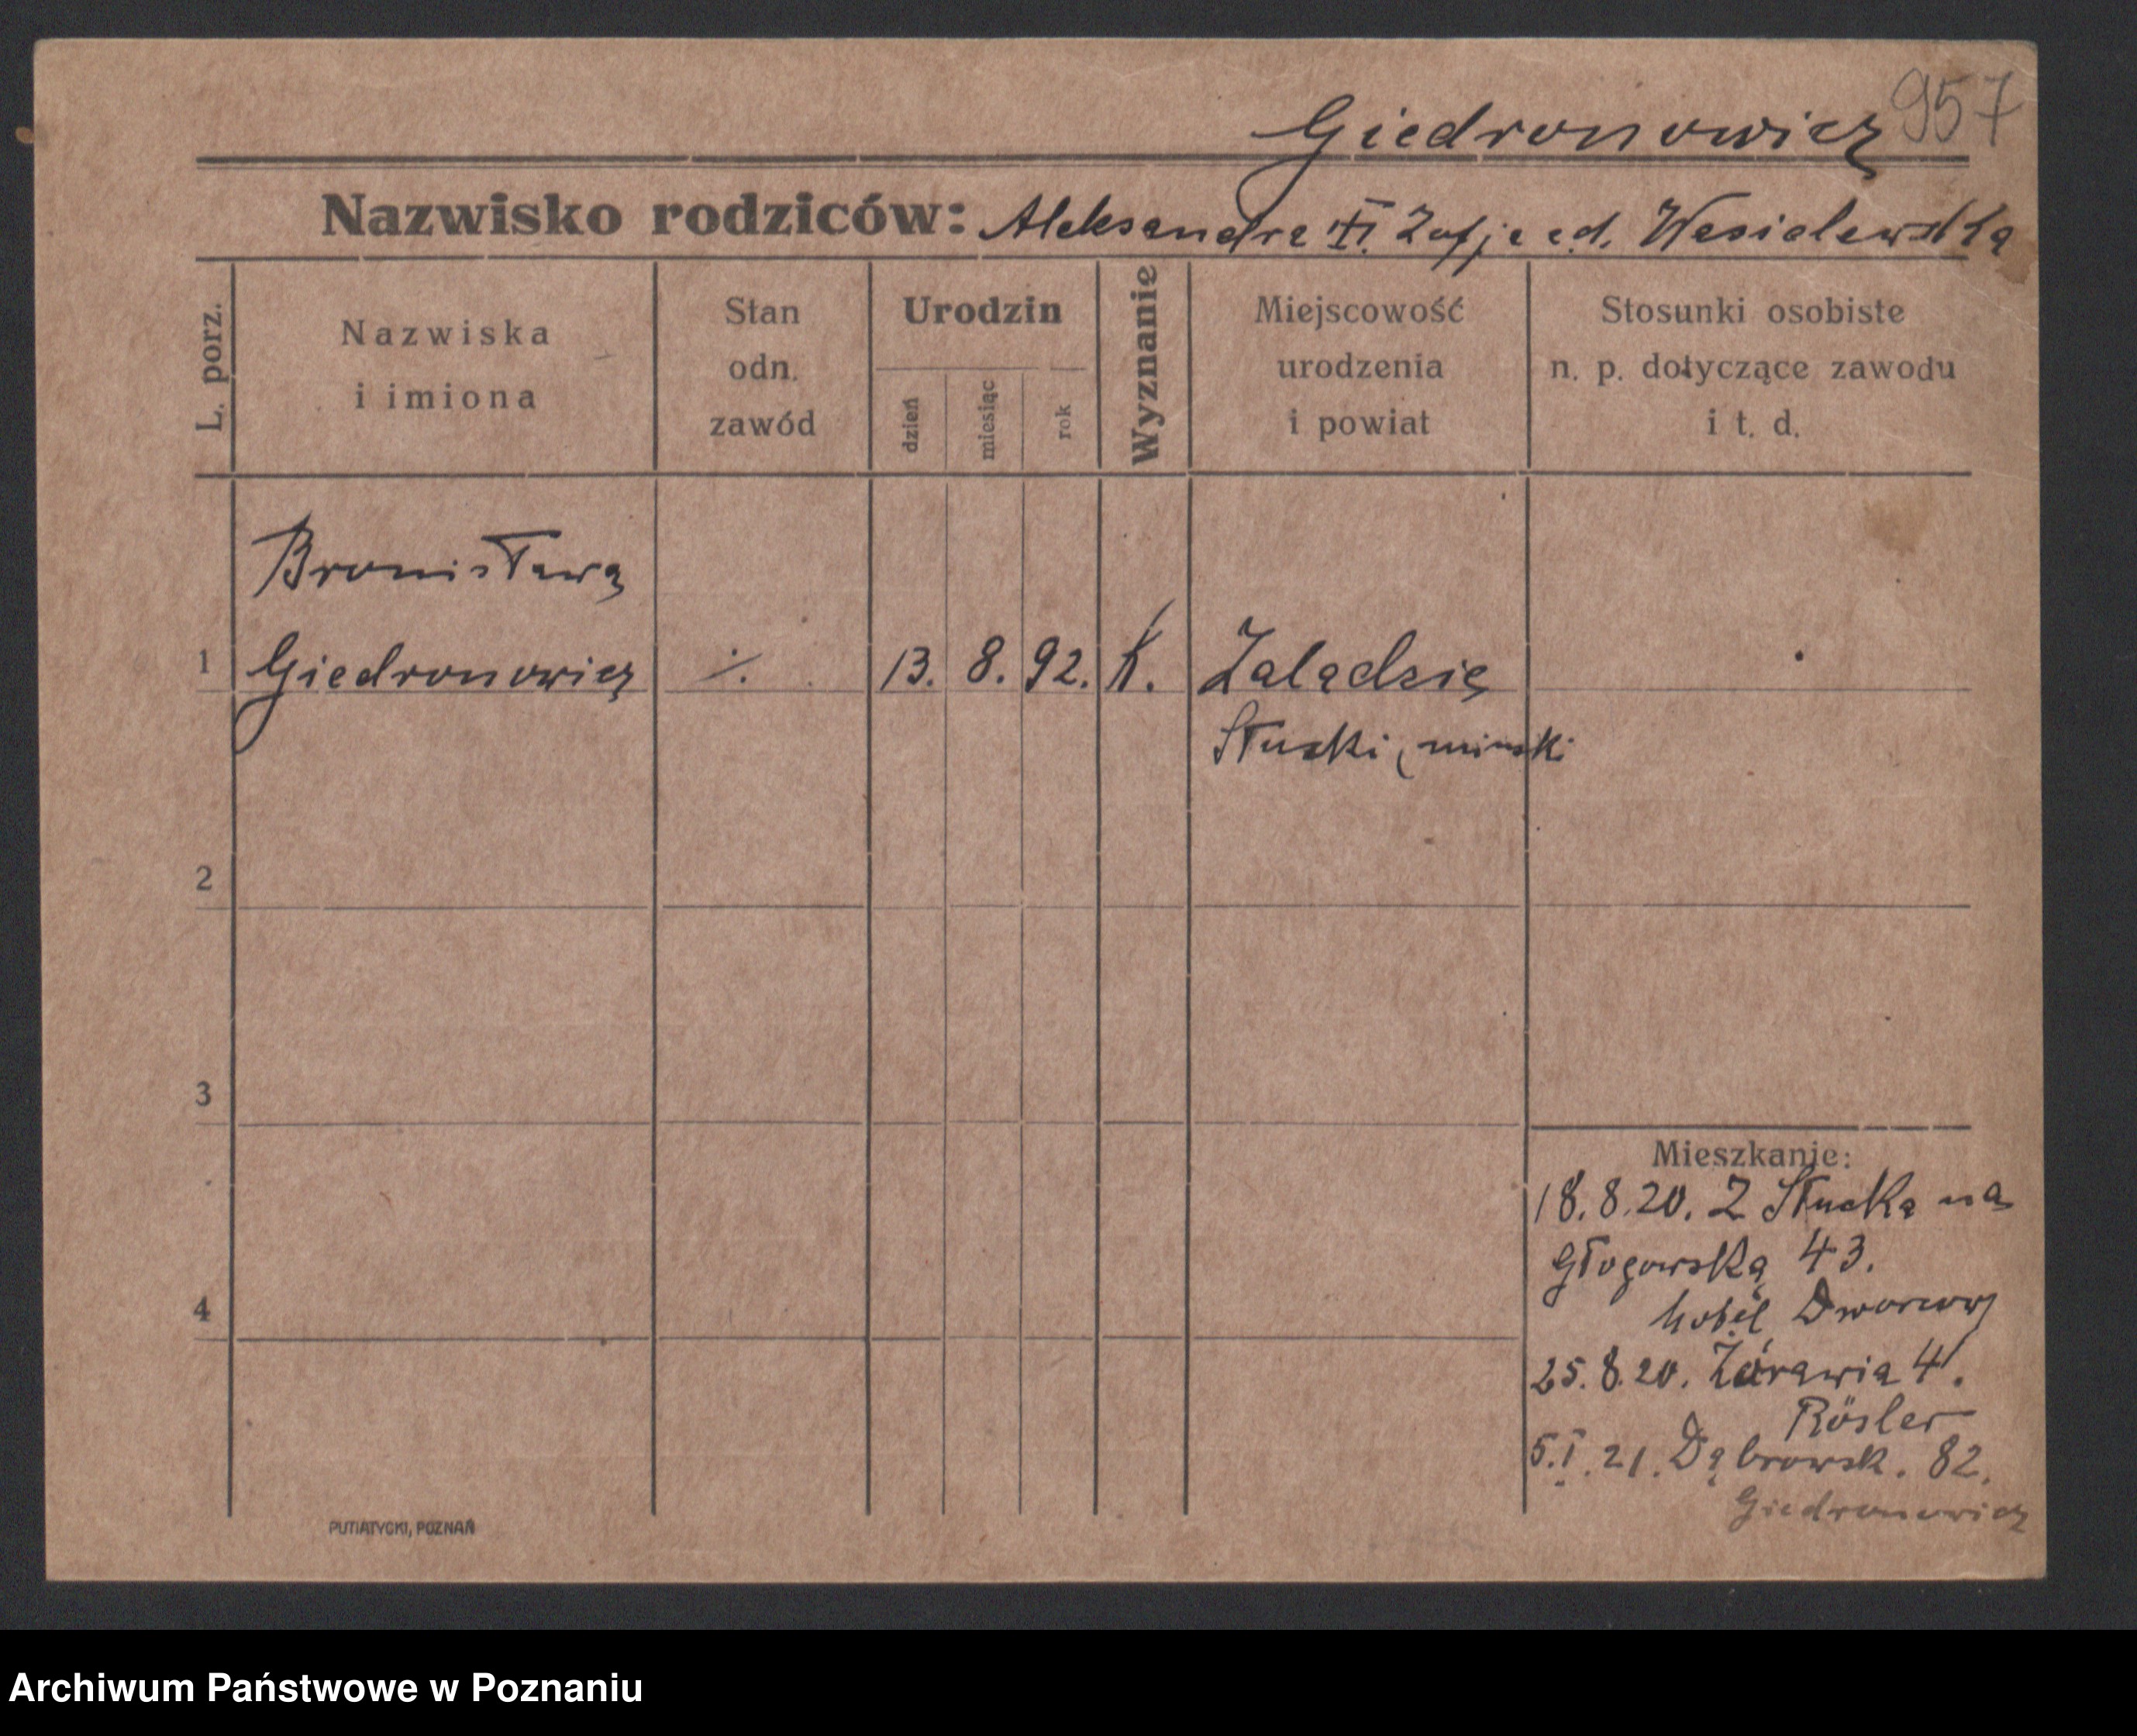 957
Giedronowicz
Nazwisko rodziców: Aleksandra Zofja Wasielewska
L. porz.
Nazwiska i imiona
Stan odn. zawód
Urodzin
dzień
miesiąc
rok
Wyznanie
Miejscowość urodzenia i powiat
Stosunki osobiste n. p. dotyczące zawodu i t. d.
Bronisława
1 Giedronowicz ./. 13. 8. 92. K. Zaladzie
Słucki, miński
2
3
4
Mieszkanie:
18.8.20. Z Słucka na
Głogowską 43.
hotel Dworcowy
25.8.20. Żórawia 4.
Rösler
5.I.21. Dąbrowsk. 82.
Giedronowicz
PUTIATYCKI, POZNAŃ
Archiwum Państwowe w Poznaniu